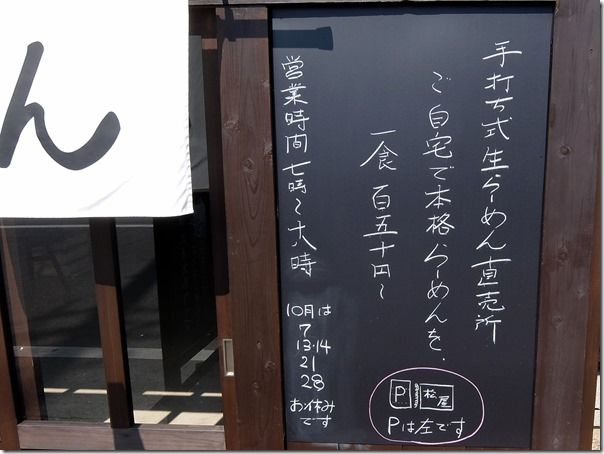 手打ち式生らーめん直売所
ご自宅で本格らーめんを、
一食 百五十円～
営業時間 七時～六時
10月は
7
13・14
21
28
お休み
です
P 松屋
Pは左です
ん